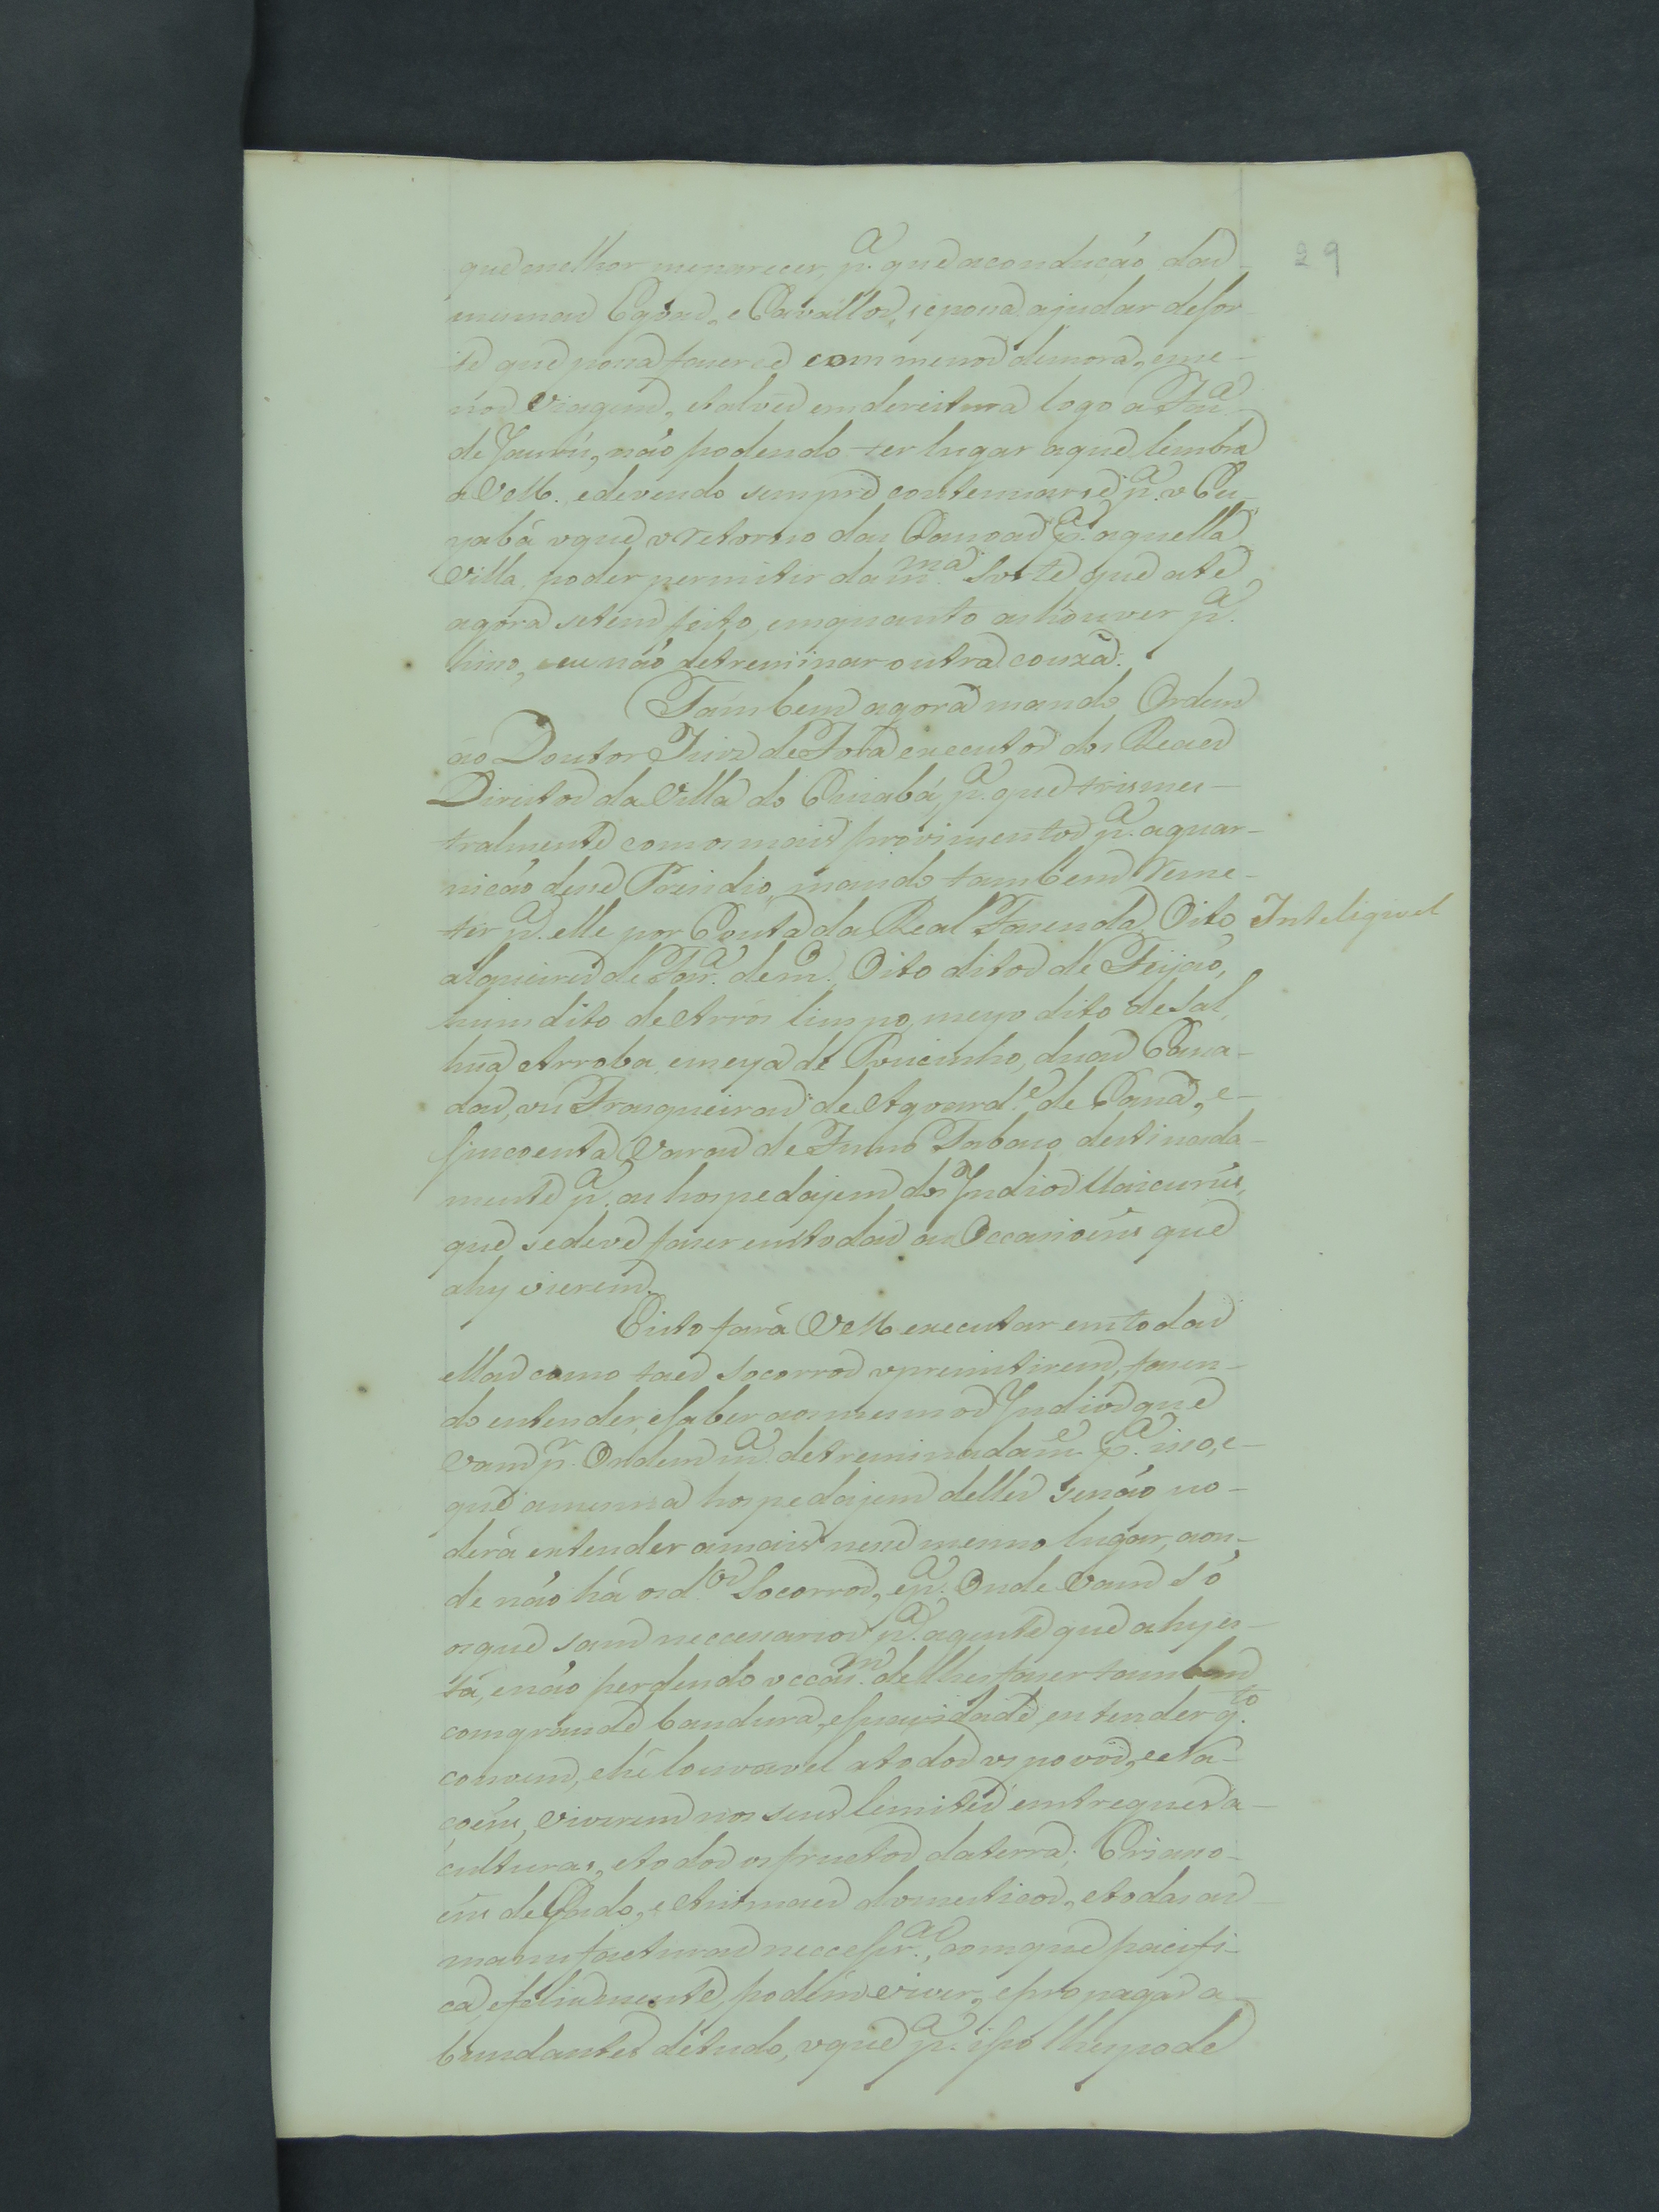 29
que melhor me parecer, p.ª que a conducáó das
mesmas Egoas, e Cavállos, se possa ajudar de sor-
te que possa fazerse com menos demora, e me-
nos Viagens, e talves em dereitura logo a Faz.ª
de Jaurú, náo podendo ter lugar a que lembra
a VM. e devendo sempre continuarse p.ª o Cu-
yabá o que o retorno das Canoas p.ª aquella
Villa poder permitir da m.ma Sorte que até
agora se tem feito, emquanto as houver p.ª
hisso, e eu náo detreminar outra couza.
Tambem agora mando Ordem
ao Doutor Juis de Fora executor dos Reaes
Direitos da Villa do Cuiabá, p.ª que trismes-
tralmente com os mais provimentos p.ª a guar-
nicáo desse Prezidio, mande tambem reme-
ter p.ª elle por Conta da Real Fazenda, Oito Inteligivel
alqueires de Far.ª de m.º, Oito ditos de Feijaó,
hum dito de Arros limpo, meyo dito de Sal,
huã Arroba e meya de Toucinho, duas Cana-
das, ou Frasqueiras de Agoard.e de Cana, e
sincoenta Varas de Fumo Tabaco destinada-
mente p.ª as hospedajem dos Indios Uaicurús,
que se deve fazer em todas as Occazioéns que
ahy vierem.
Eisto fará VM executar em todas
ellas como taes socorros o premitirem, fazen-
do entender, e saber aos mesmos Indios que
Vam p.r Ordem m.ª detreminadam.e p.ª isso, e
que a mesma hospedajem delles se náo po-
derá extender a mais nesse mesmo lugar, aon-
de náo há os d.os Socorros, e p.ª Onde Vam só
os que sam neccessarios p.ª a gente que ahy es-
tá, e náo perdendo occaz.m de lhes fazer tambem
com grande bandura, e suavidade entender q.to
convem, e hé louvavel a todos os povos, e Na-
coéns, Viverem nos seus limites entregues a
culturas, e todos os fructos da terra; Criaso-
éns de Gado, e Animaes domesticos, e todas as
manufacturas neccessr.as, com que pacifi-
ca, e felizmente, podem Viver, e propagar a-
bundantes de tudo, o que p.ª isso lhes pode